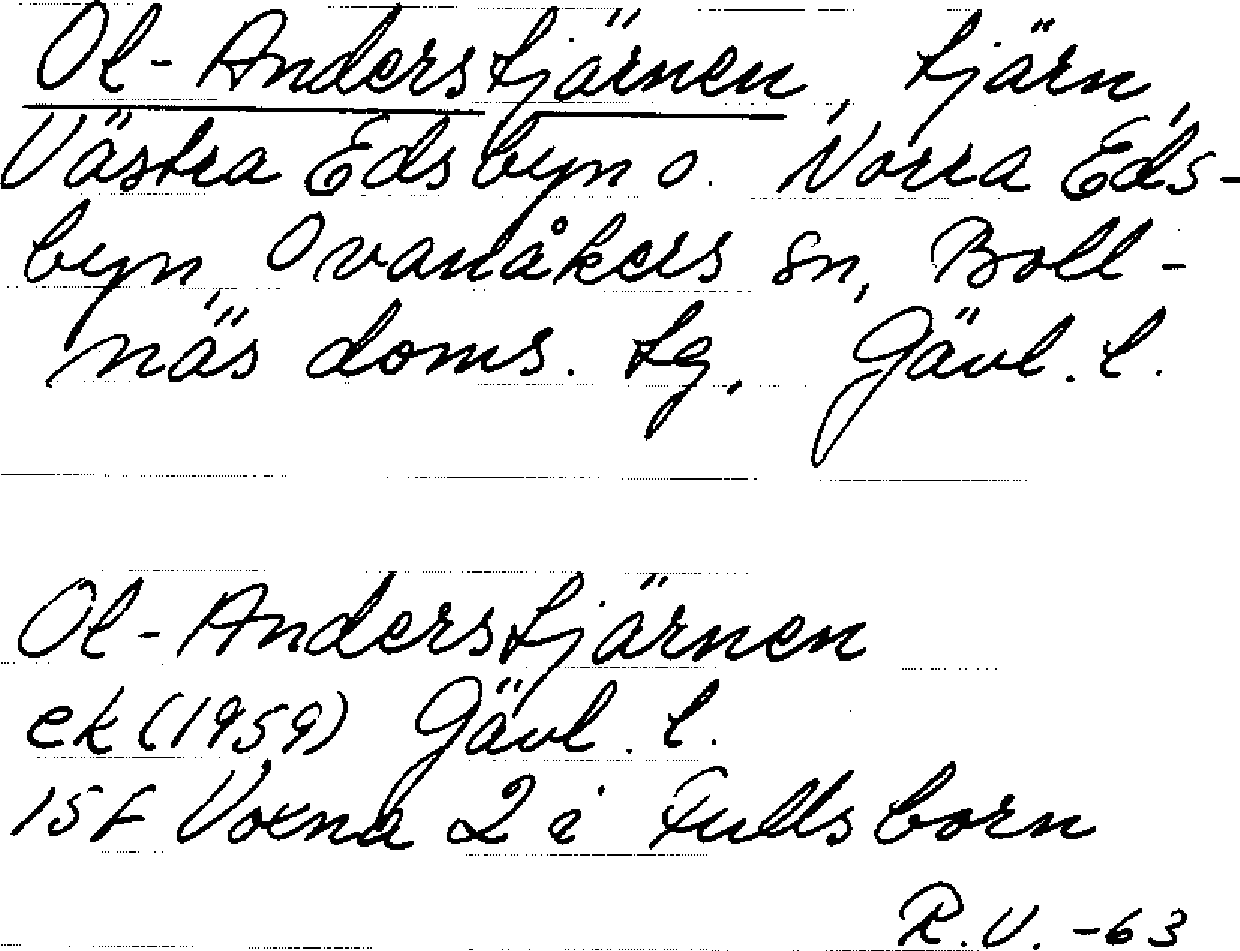 Ol-Anderstjärnen, tjärn,
Västra Edsbyn o. Norra Eds-
byn, Ovanåkers sn, Boll-
näs doms. tg, Gävl. l.
Ol-Anderstjärnen
ek (1959) Gävl. l.
15F Voxna 2 i Fullsborn
R.V. -63